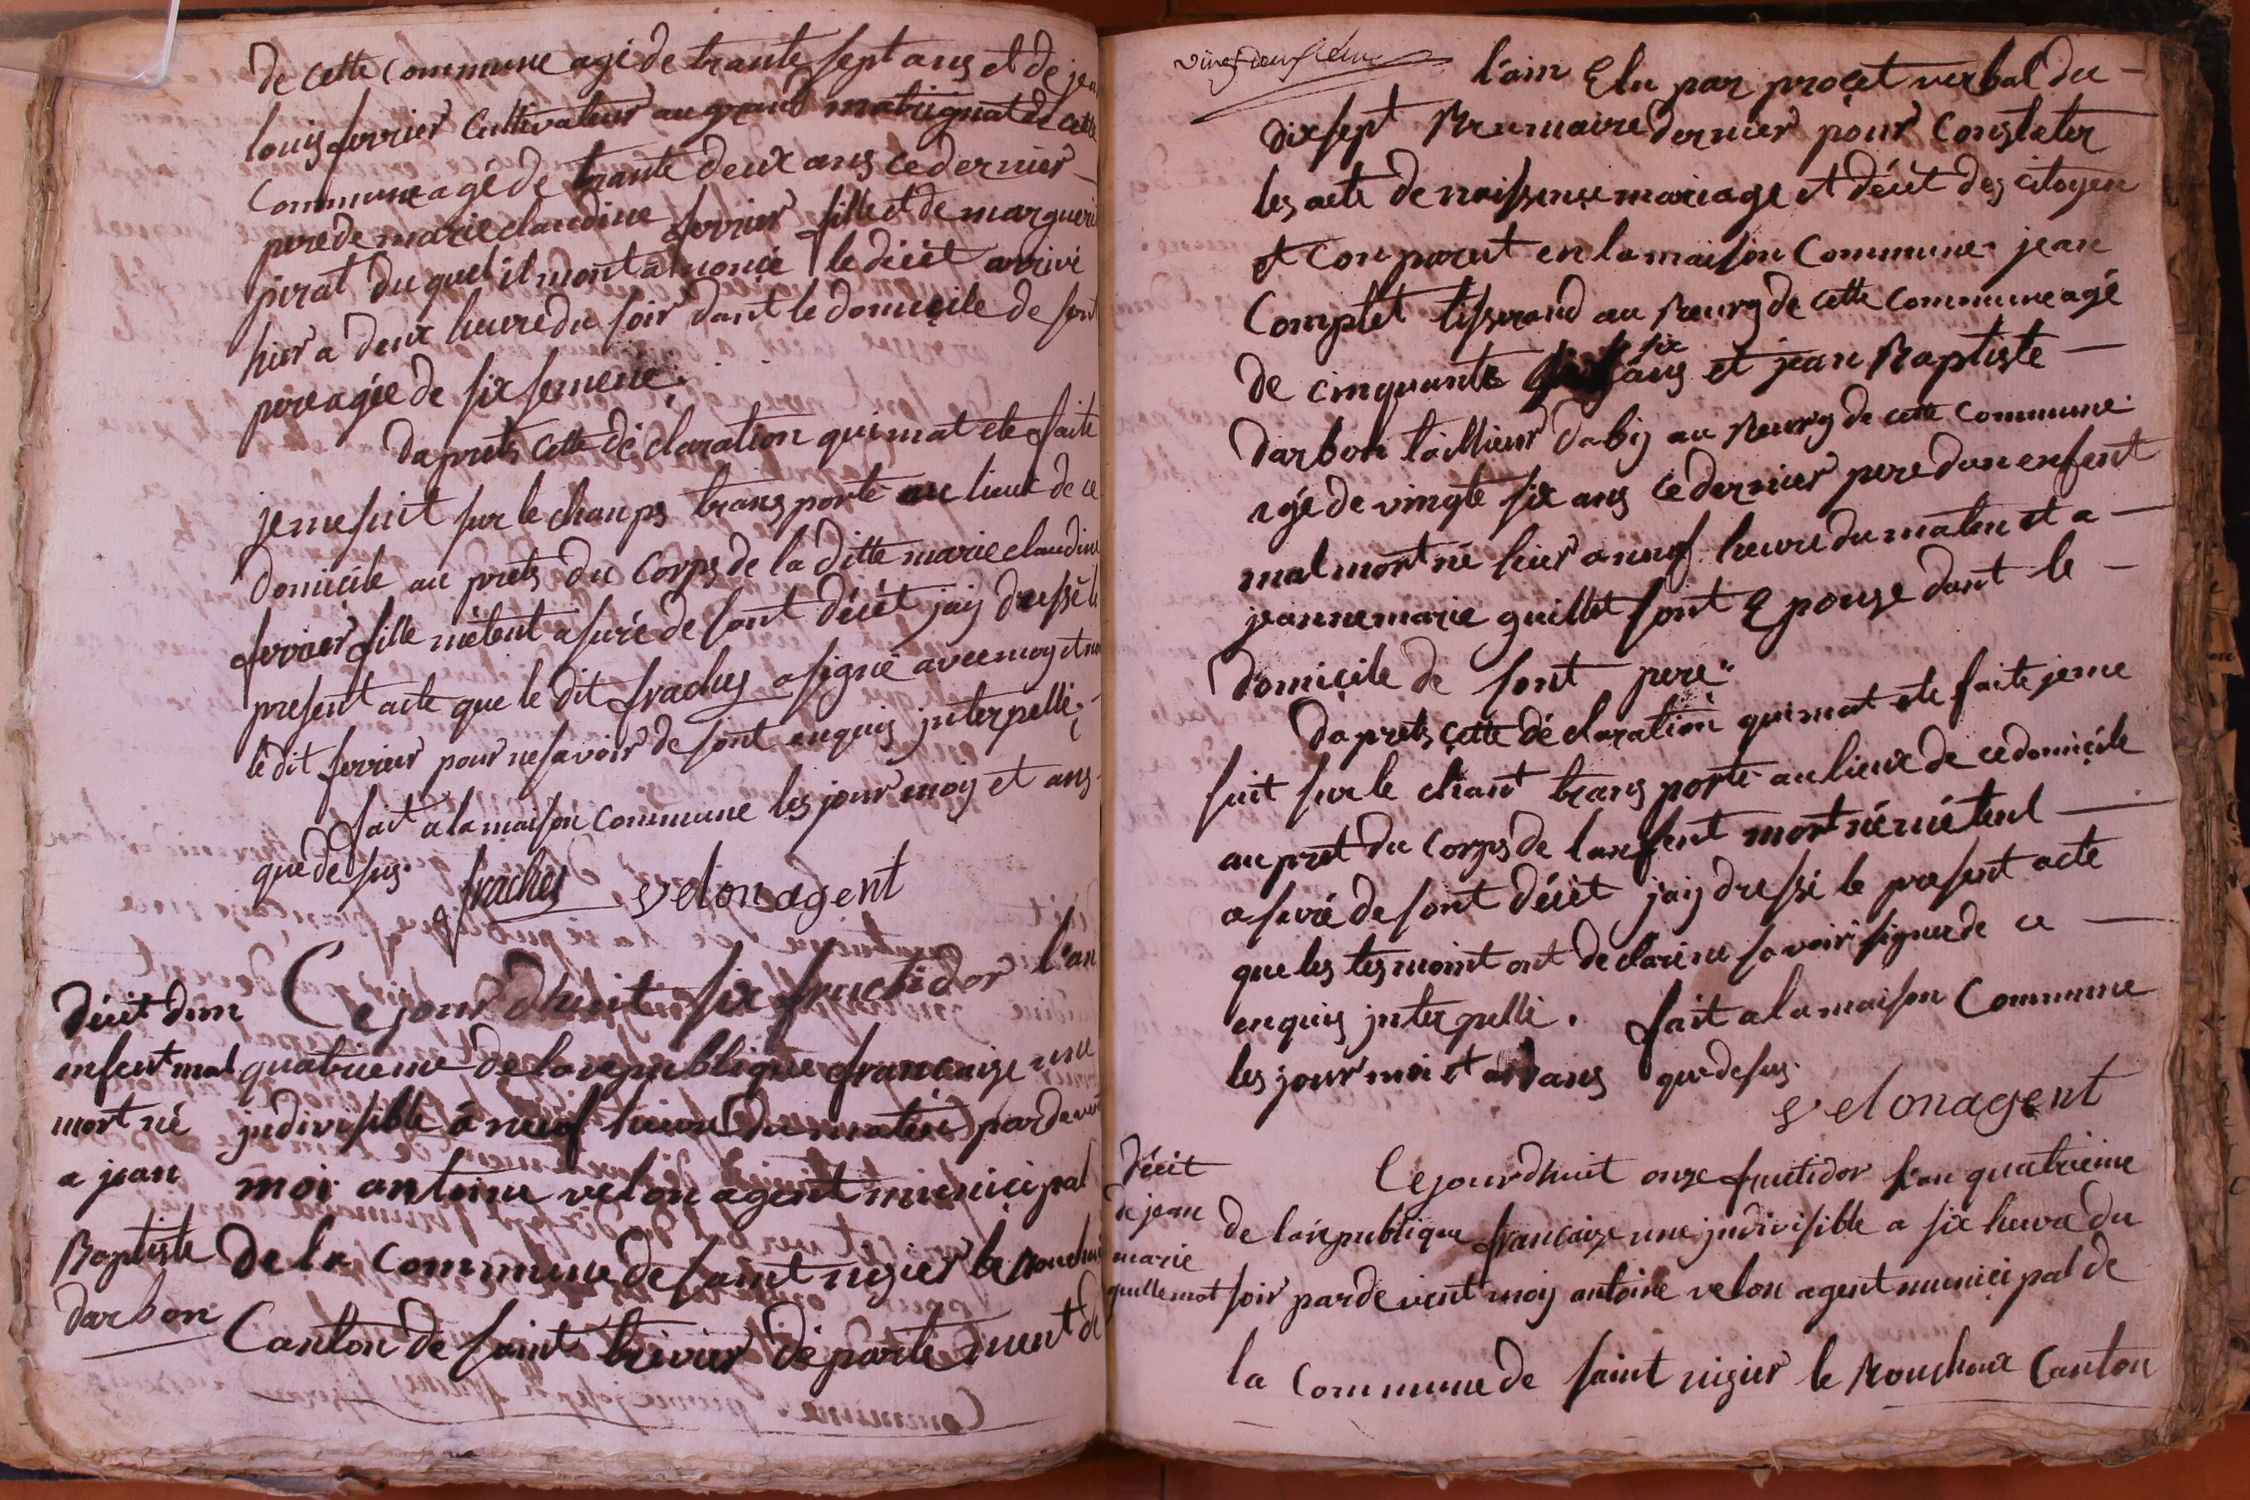 de cette commune agé de trante sept ans et de jea
louis ferrier cultivateur au grand matrignat de cette
commune agé de trante deux ans ce dernier
pere de marie claudine ferrier fille et de margueri
perat du quel il mont anoncé le décèt arrivé
hier a deux heure du soir dant le domicile de sont
pere agée de six semene.
daprets cette déclaration qui mat ete faite
je me suit sur le champs trans porté au lieux de ce
domicile au prets du corps de la ditte marie claudine
ferrier fille métent asuré de sont décèt jaij dressé le
present acte que le dit fraches a signé avec moy et non
le dit ferrier pour ne savoir de sont enquis jnterpellé.
fait a la maison commune les jour moy et ans
que desus. fraches velon agent
décèt dun
enfent mal
mort né
a jean
Baptiste
darbon
Ce jourdhuit six fructidor l'an
quatrieme de la republique francaize une
jndivisible à neuf heure du matin pardevent
moi antoine velon agent municipal
de la commune de saint nizier le Bouchou
Canton de saint trivier département de
vingt deuxieme
l'ain Elu par procet verbal du
dix sept Brumaire dernier pour constater
les acte de naissence mariage et décèt des citoyen
et con parut en la maison commune jean
Complet tisserand au Bourg de cette commune agé
de cinquante six ans et jean Baptiste
darbon taillieur dabij au Bourg de cette commune
agé de vingte six ans ce dernier pere dun enfent
mal mort né hier a neuf heure du maten et a
jeanne marie guillet sont Epouze dant le
domicile de sont pere
daprets cette déclaration qui mat ete faite je me
suit sur le chant trans porté au lieux de ce domicile
au pret du corps de lanfent mort né métent
asuré de sont décèt jaij dressé le present acte
que les tesmoint ont declaré ne savoir signer de ce
enquis jnterpellé. fait a la maison commune
les jour moi et ans que desus.
velon agent
décèt
de jean
marie
guillemot
Ce jourdhuit onze fructidor l'an quatrieme
de la republique francaize une jndivisible a six heure du
soir pardevent moij antoine velon agent municipal de
la commune de saint nizier le Bouchoux Canton